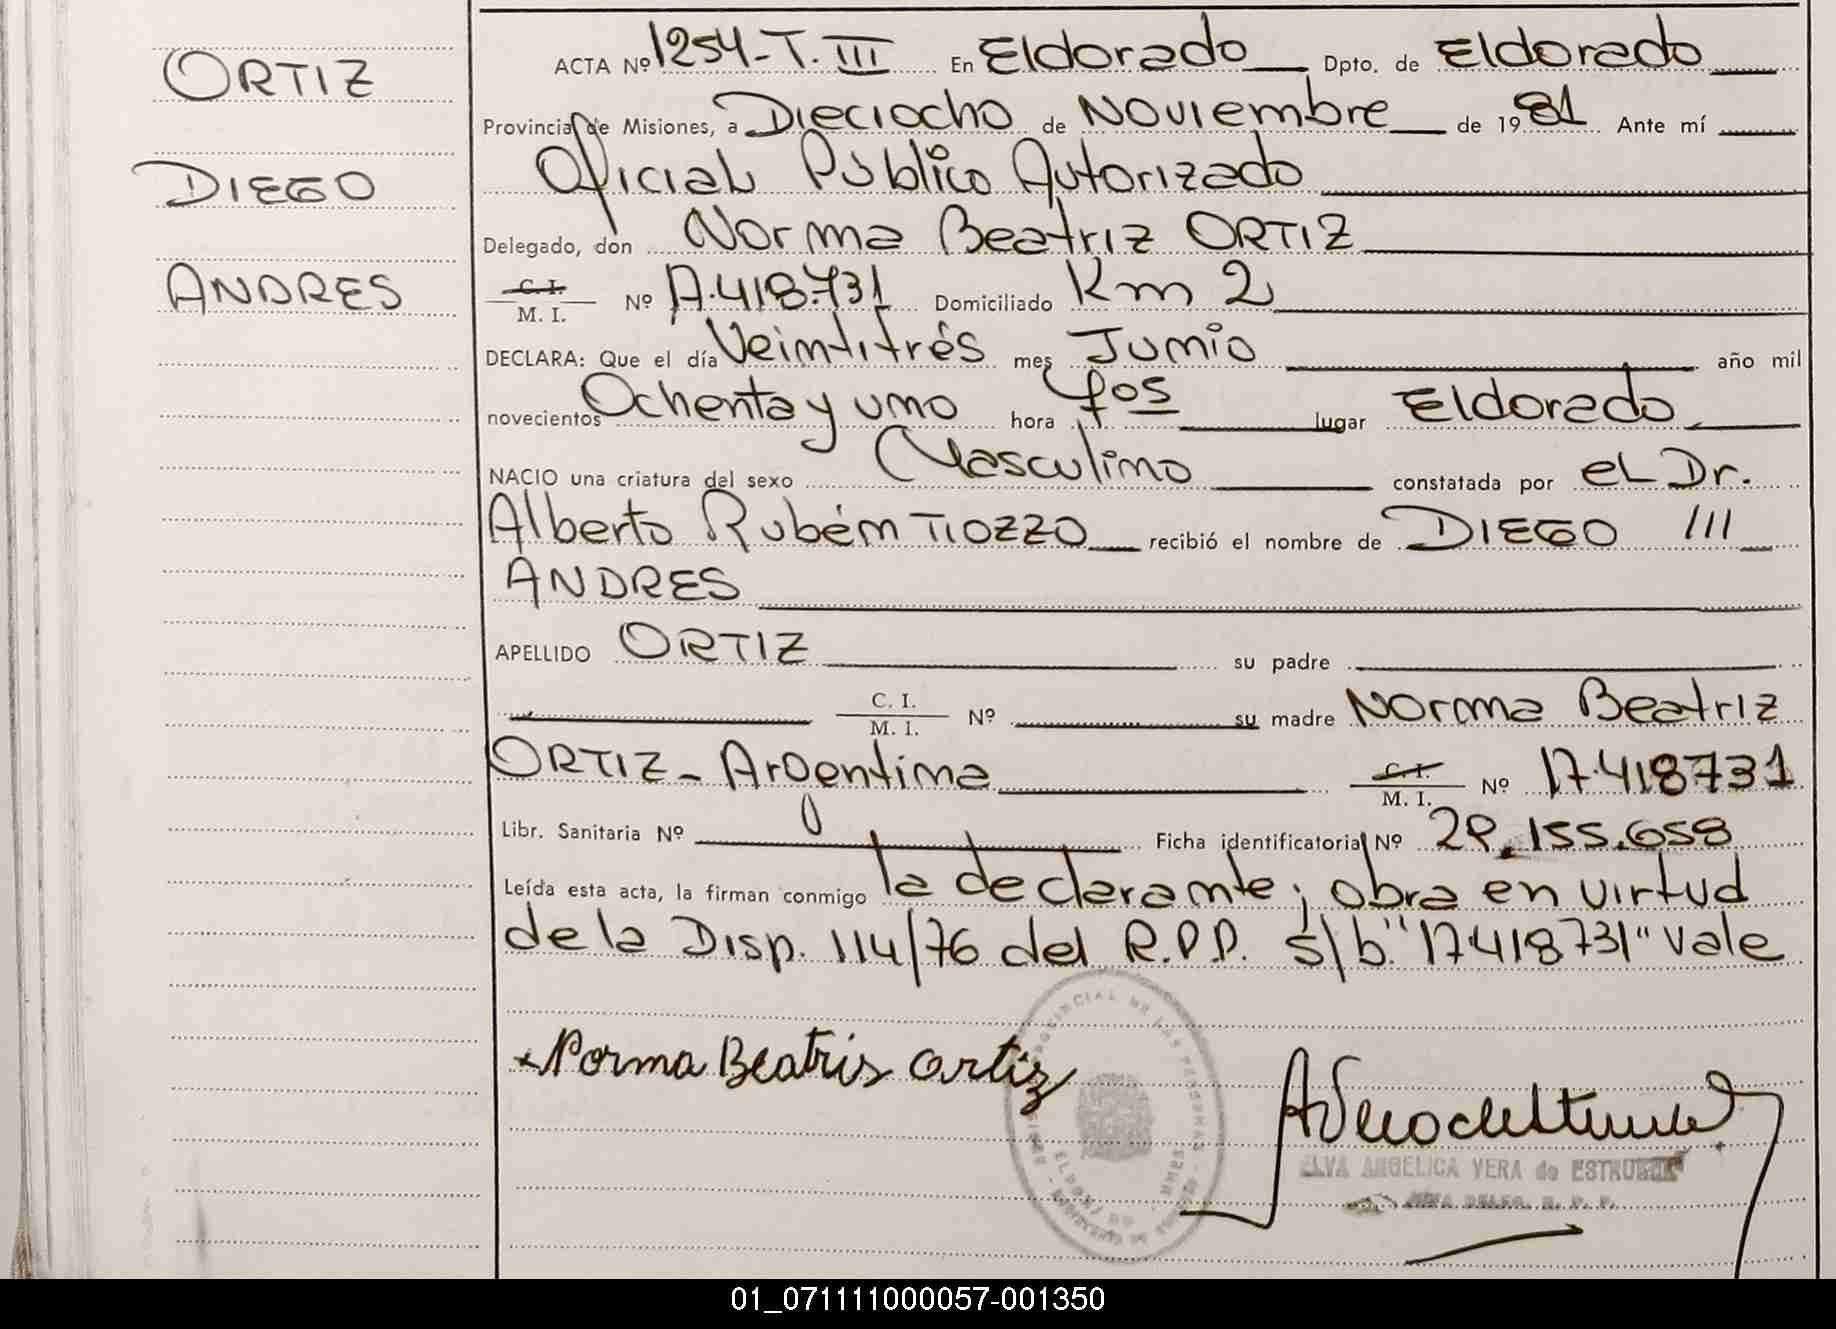 ORTIZ
DIEGO
ANDRES
ACTA Nº 1254-T. III En Eldorado Dpto. de Eldorado
Provincia de Misiones, a Dieciocho de Noviembre de 1981 Ante mí
Oficial Público Autorizado
Delegado, don Norma Beatriz ORTIZ
C. I.
M. I. Nº 17.418.731 Domiciliado Km 2
DECLARA: Que el día Veintitrés mes Junio año mil
novecientos Ochenta y uno hora lugar Eldorado
NACIO una criatura del sexo Masculino constatada por el Dr.
Alberto Rubén TIOZZO recibió el nombre de DIEGO ///
ANDRES
APELLIDO ORTIZ su padre
C. I.
M. I. Nº su madre Norma Beatriz
ORTIZ - Argentina C. I.
M. I. Nº 17.418731
Libr. Sanitaria Nº Ficha identificatoria Nº 29.155.658
Leída esta acta, la firman conmigo la declarante; obra en virtud
de la Disp. 114/76 del R.P.P. s/b. "17.418731" Vale
Norma Beatris Ortiz
ELVA ANGELICA VERA de
01_071111000057-001350